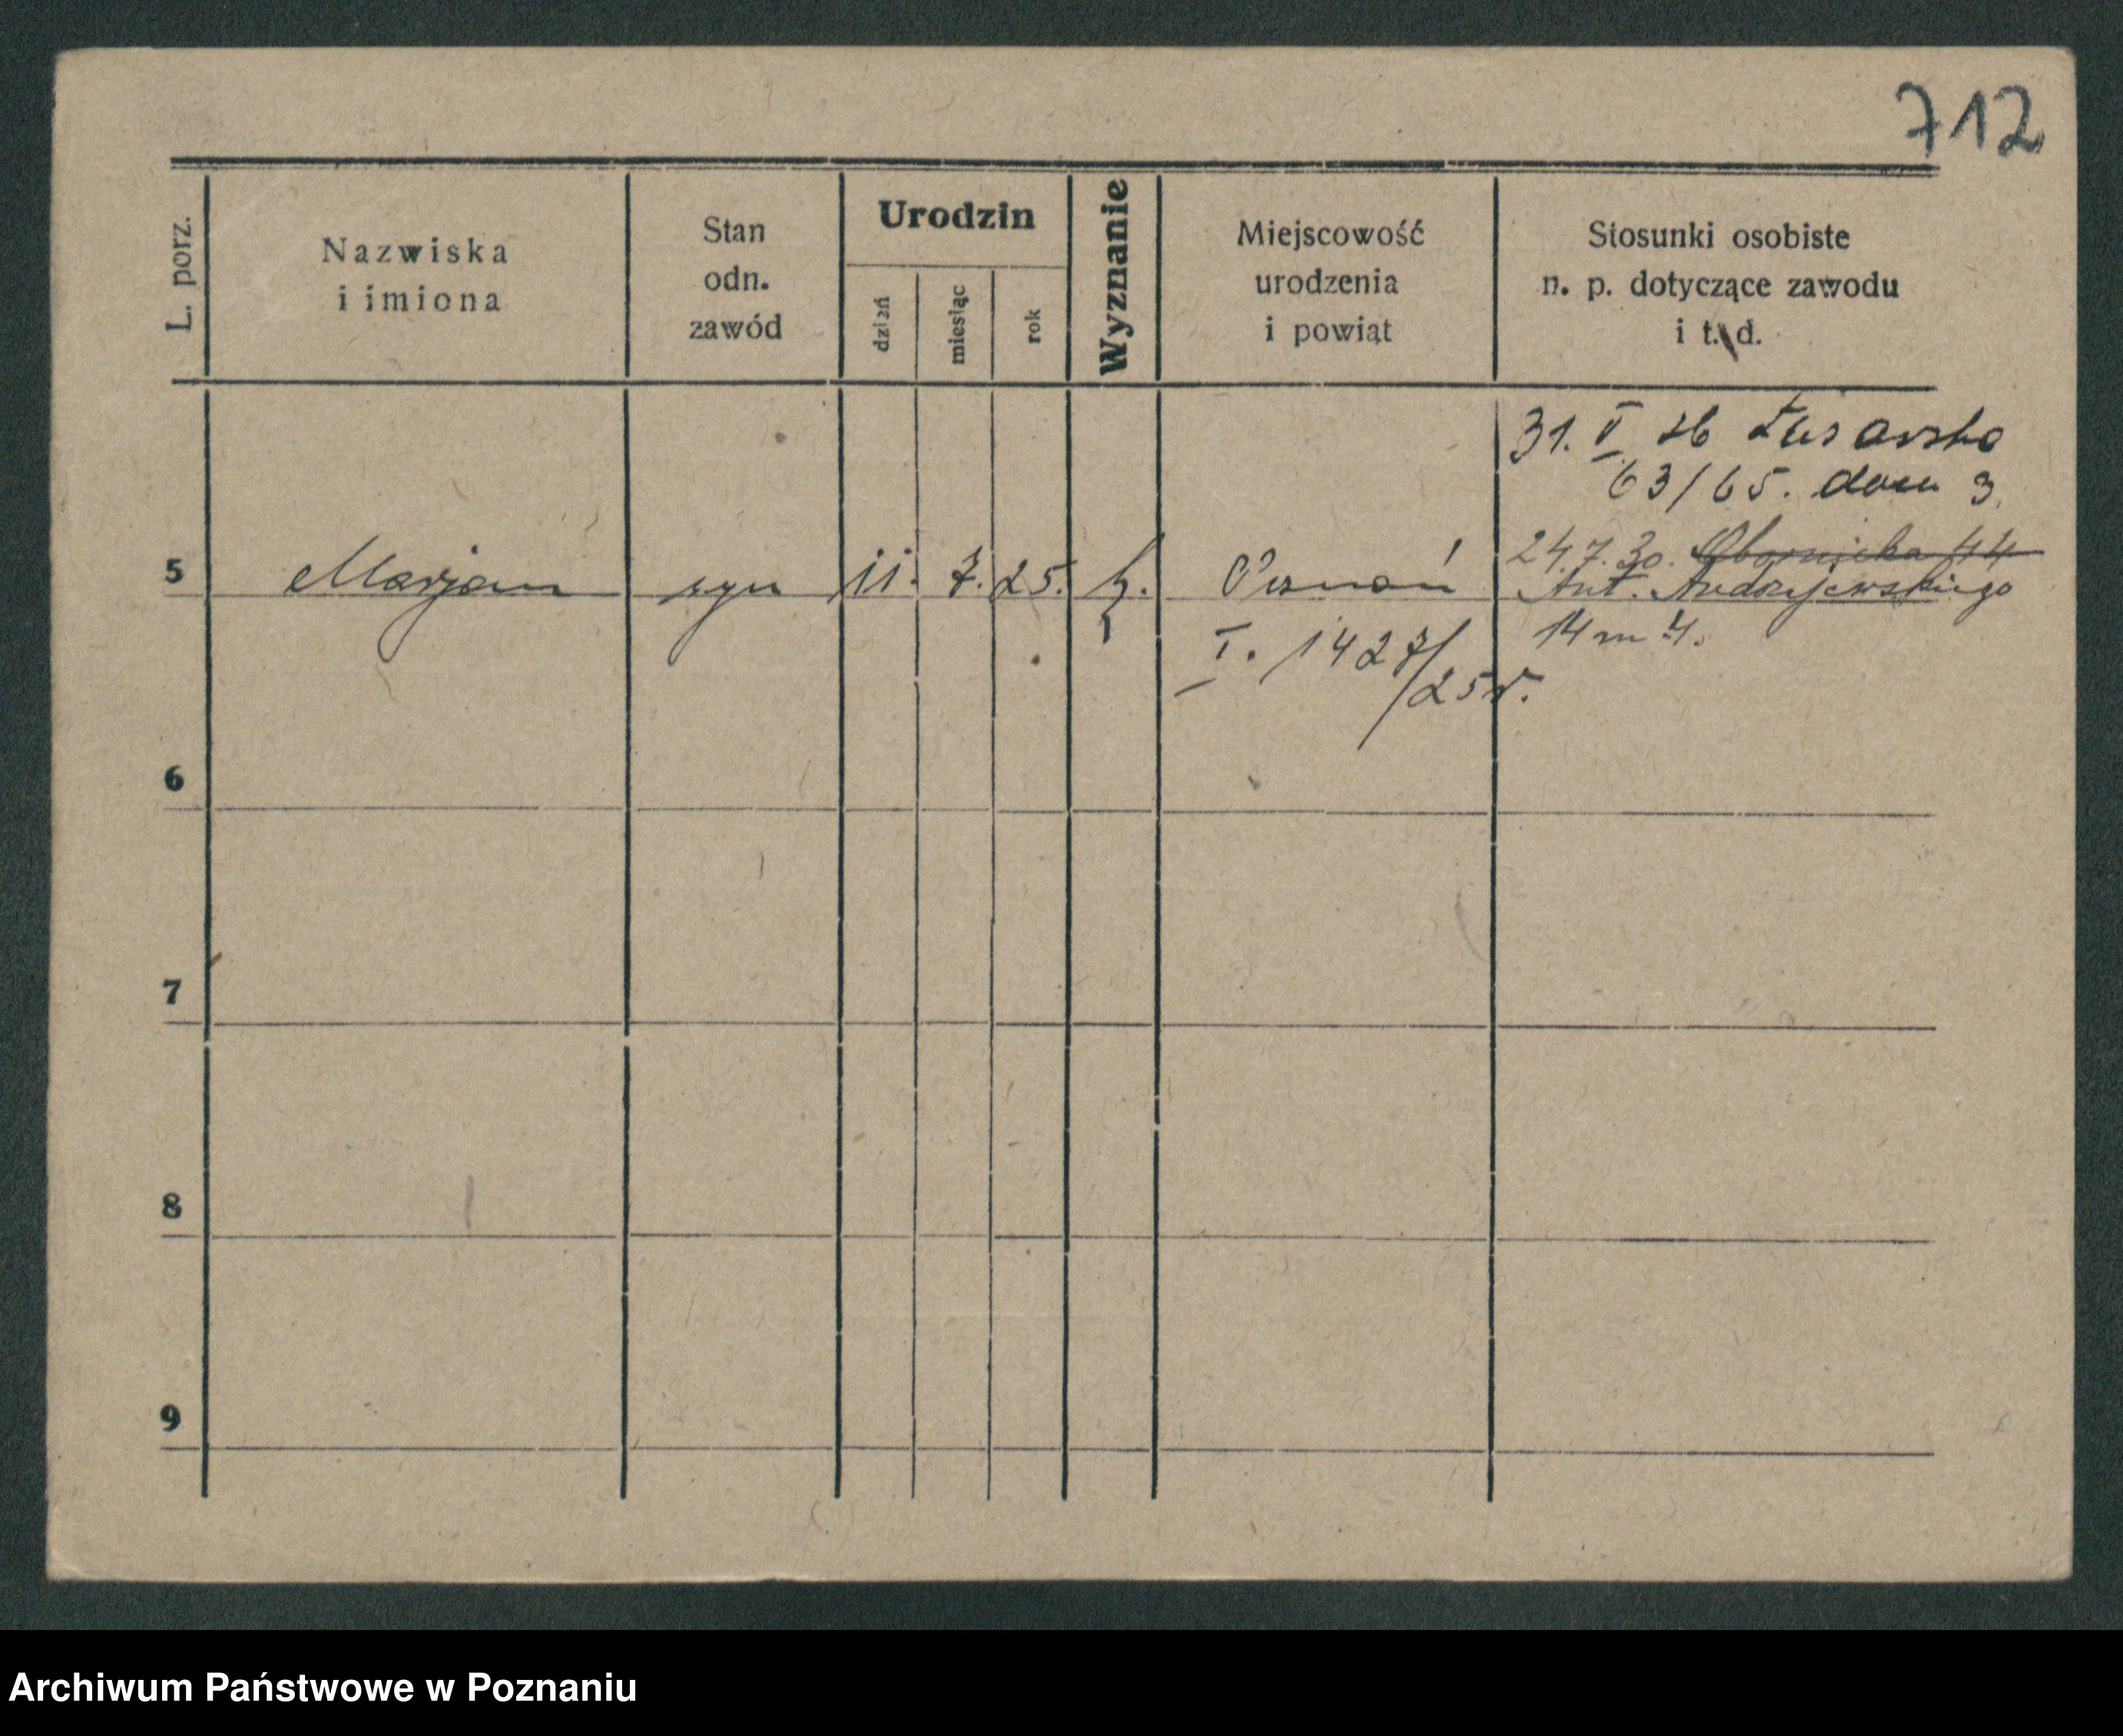 712
L. porz.
Nazwiska
i imiona
Stan
odn.
zawód
Urodzin
dzień
miesiąc
rok
Wyznanie
Miejscowość
urodzenia
i powiąt
Stosunki osobiste
n. p. dotyczące zawodu
i t. d.
31. V 26
63/65. dom 3.
24.7.30. Obornicka 44
5 Marjan syn 11. 7. 25. k. Poznań Ant. Andrzejewskiego
14 m 4.
I. 1427/
25 r.
6
7
8
9
Archiwum Państwowe w Poznaniu